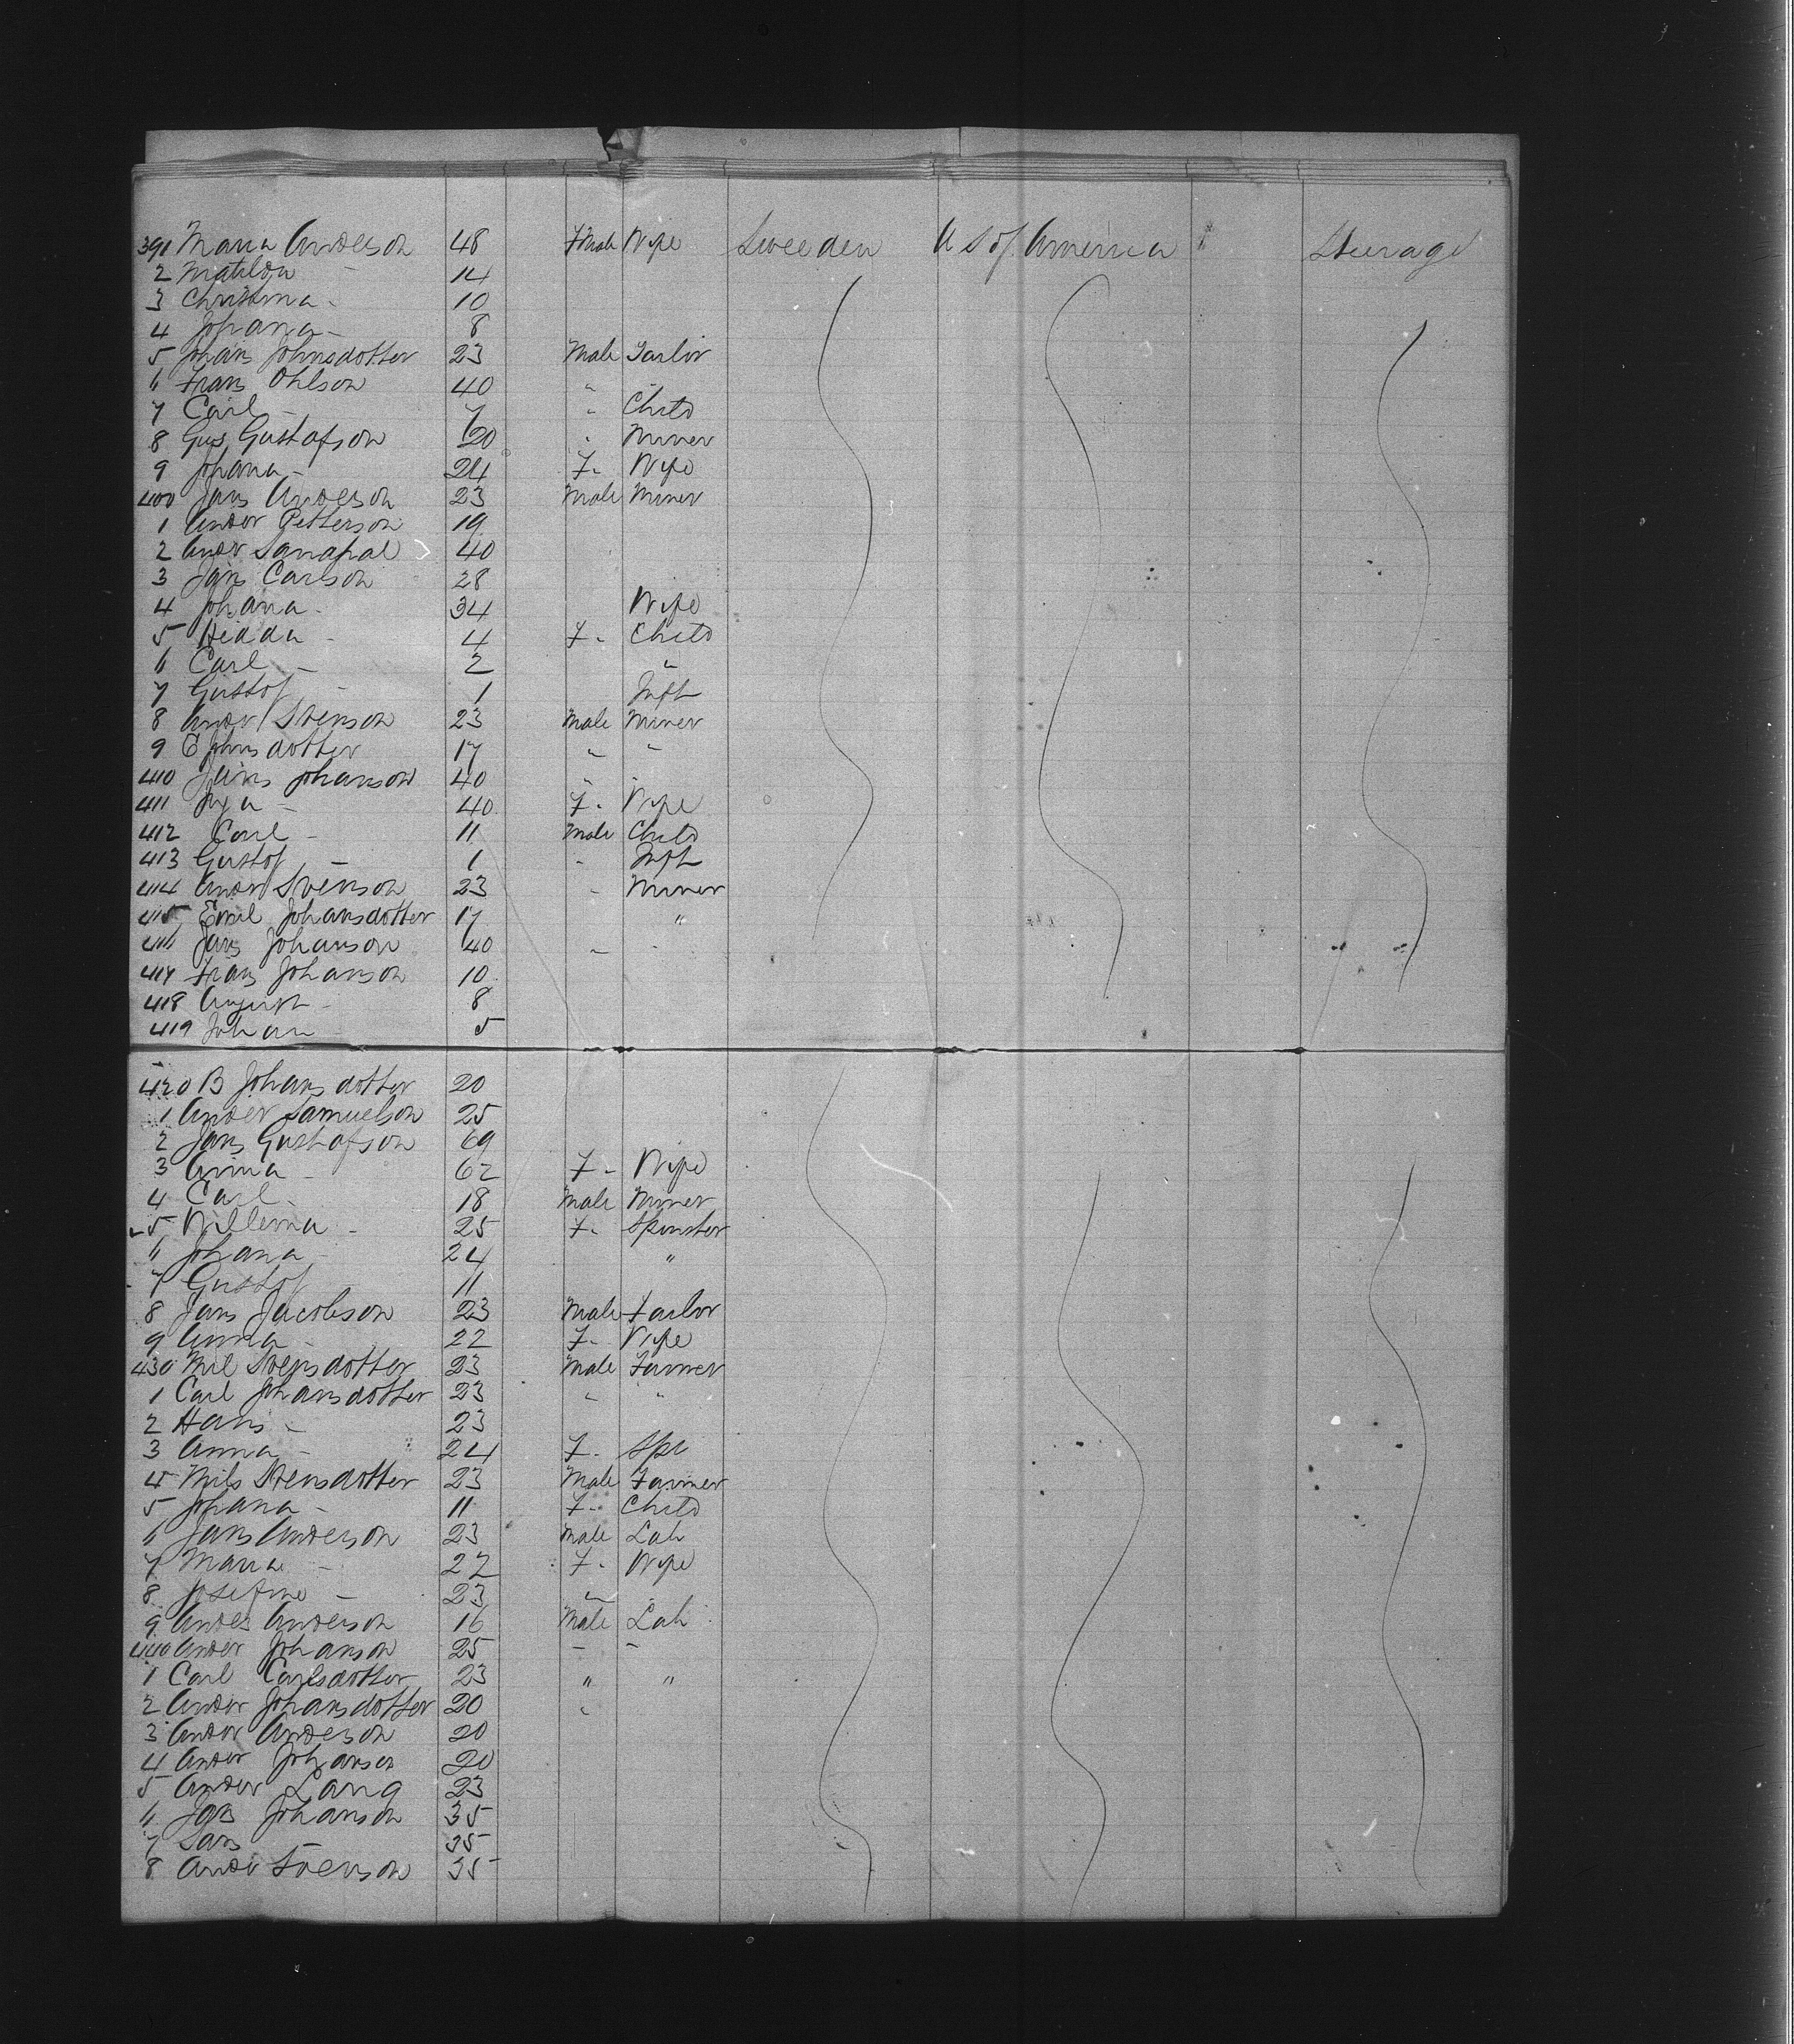 391 Maria Anderson 48 Fmale Wife Sweeden U S of America Steerage
2 Matilda - 14
3 Christina - 10
4 Johana - 8
5 Johans Johnsdotter 23 Male Tailor
6 Frans Ohlson 40 "
7 Carl - 7 " Child
8 Gus Gustafson 20 " Miner
9 Johana - 24 F. Wife
400 Jans Anderson 23 Male Miner
1 Ander Petterson 19
2 Ander 40
3 Jans Carlson 28
4 Johana - 34 Wife
5 Hedda - 4 F. Child
6 Carl - 2 "
7 Gustof - 1 Inft
8 Ander Svenson 23 Male Miner
9 E Johnsdotter 17 " "
410 Jans Johanson 40 " "
411 - 40 F. Wife
412 Carl - 11 Male Child
413 Gustof - 1 " Inft
414 Ander Svenson 23 " Miner
415 Emil Johansdotter 17 "
416 Jans Johanson 40 " "
417 Frans Johanson 10
418 August - 8
419 Johan - 5
420 B Johansdotter 20
1 Ander Samuelson 25
2 Jans Gustafson 69
3 Anna - 62 F. Wife
4 Carl - 18 Male Miner
5 Willema - 25 F. Spinster
6 Johana - 24 "
7 Gustof 11
8 Jans Jacobson 23 Male Tailor
9 Anna - 22 F. Wife
430 Nil Svensdotter 23 Male Farmer
1 Carl Johansdotter 23 " "
2 Hans - 23
3 Anna - 24 F. Spi
4 Nils Svensdotter 23 Male Farmer
5 Johana - 11 F. Child
6 Jans Anderson 23 Male Lab
7 Maria - 22 F. Wife
8 Josefine - 23 "
9 Andes Anderson 16 Male Lab
440 Ander Johanson 25 - -
1 Carl Carlsdotter 23 " "
2 Ander Johansdotter 20 "
3 Ander Anderson 20
4 Ander Johanson 20
5 Ander Lang 23
6 Jans Johanson 35
7 Lars - 35
8 Ander Svenson 35